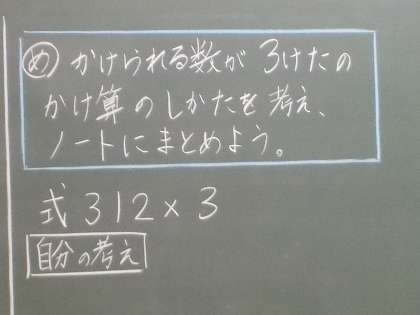 め かけられる数が 3けたの
かけ算のしかたを考え、
ノートにまとめよう。
式 312×3
自分の考え